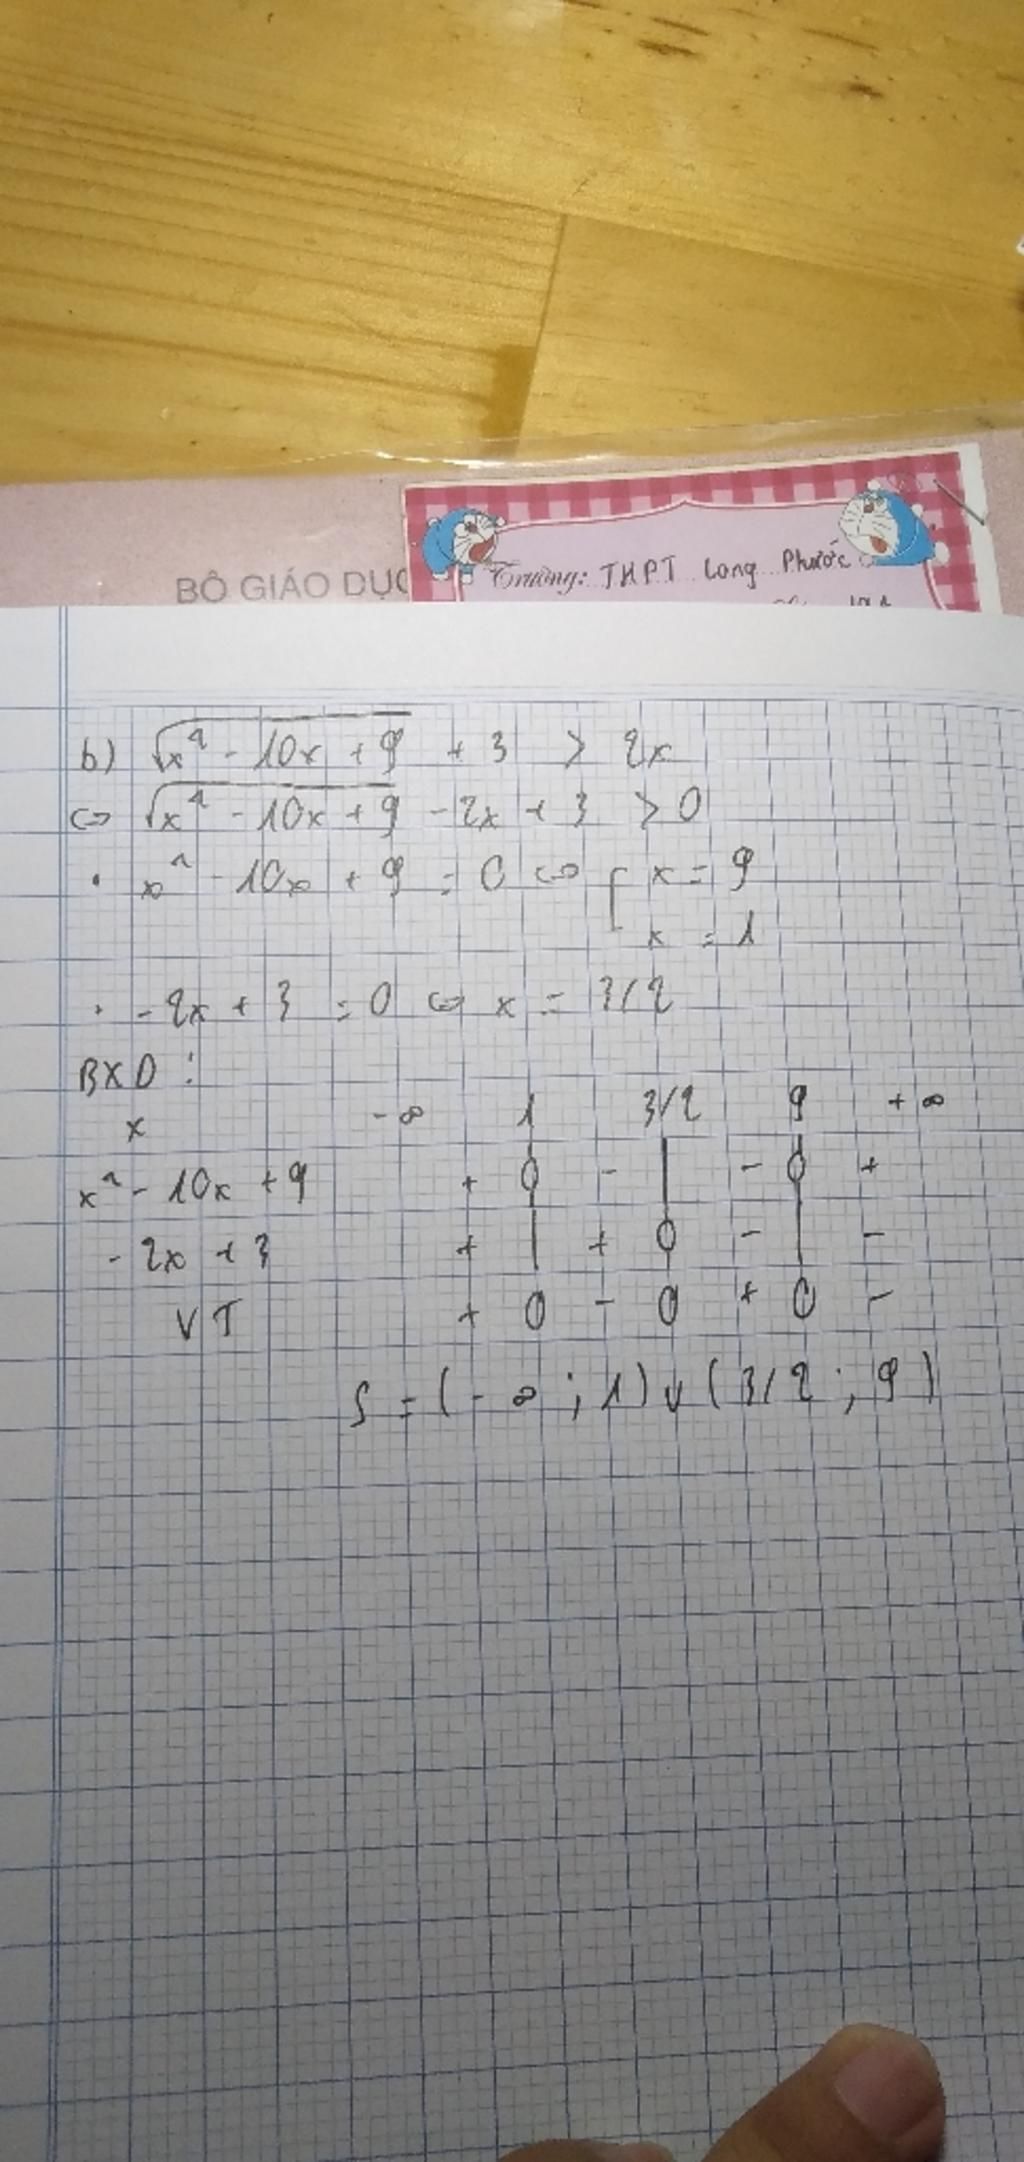 BỘ GIÁO DỤC
Trường: THPT Long Phước
b) √(x² - 10x + 9) + 3 > 2x
<=> √(x² - 10x + 9) - 2x + 3 > 0
• x² - 10x + 9 = 0 <=> [ x = 9
x = 1
• -2x + 3 = 0 <=> x = 3/2
BXD :
x -∞ 1 3/2 9 +∞
x² - 10x + 9 + 0 - | - 0 +
- 2x + 3 + | + 0 - | -
VT + 0 - 0 + 0 -
S = (-∞ ; 1) ∪ (3/2 ; 9)